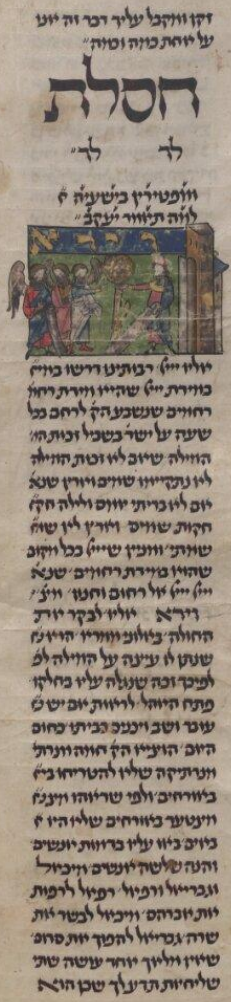 זקן ומקבל עליך דבר זה
על אחת כמה וכמה
חסלת
לך לך
ומפטירין בישעיה
למה תאמר יעקב
וירא
אליו יי' רבותינו דרשו
במידת יי' שהיא מידת רחמ
רחמים שנשבע הק' לרחם בכל
שעה על ישר' בשביל זכות המ
המילה שאם לא זכות המילה
לא נתקיימו שמים וארץ שנא
אם לא בריתי יומם ולילה חק
חקות שמים וארץ לא שמ
שמתי ומנין שיי' בכל מקום
שהוא מידת רחמים שנא
יי' יי' אל רחום וחנון
וירא אליו לבקר את
החולה באלוני ממרא הוא
שנתן לו עיצה על המילה לפ
לפיכך זכה שנגלה עליו בחלקו
פתח האהל לראות אם יש ע
עובר ושב ויכניס בביתו כחום
היום הוציא הק' חמה מנרת
מנרתיקה שלא להטריחו בא
באורחים ולפי שראוהו מצט
מצטער באורחים שלא היו א
באים באו עליו בדמות אנשים
והנה שלשה אנשים מיכאל
וגבריאל ורפאל רפאל לרפות
את אברהם ומיכאל לבשר את
שרה גבריאל להפוך את סדום
שאין מלאך אחד עושה שתי
שליחיות תדע לך שכן הוא